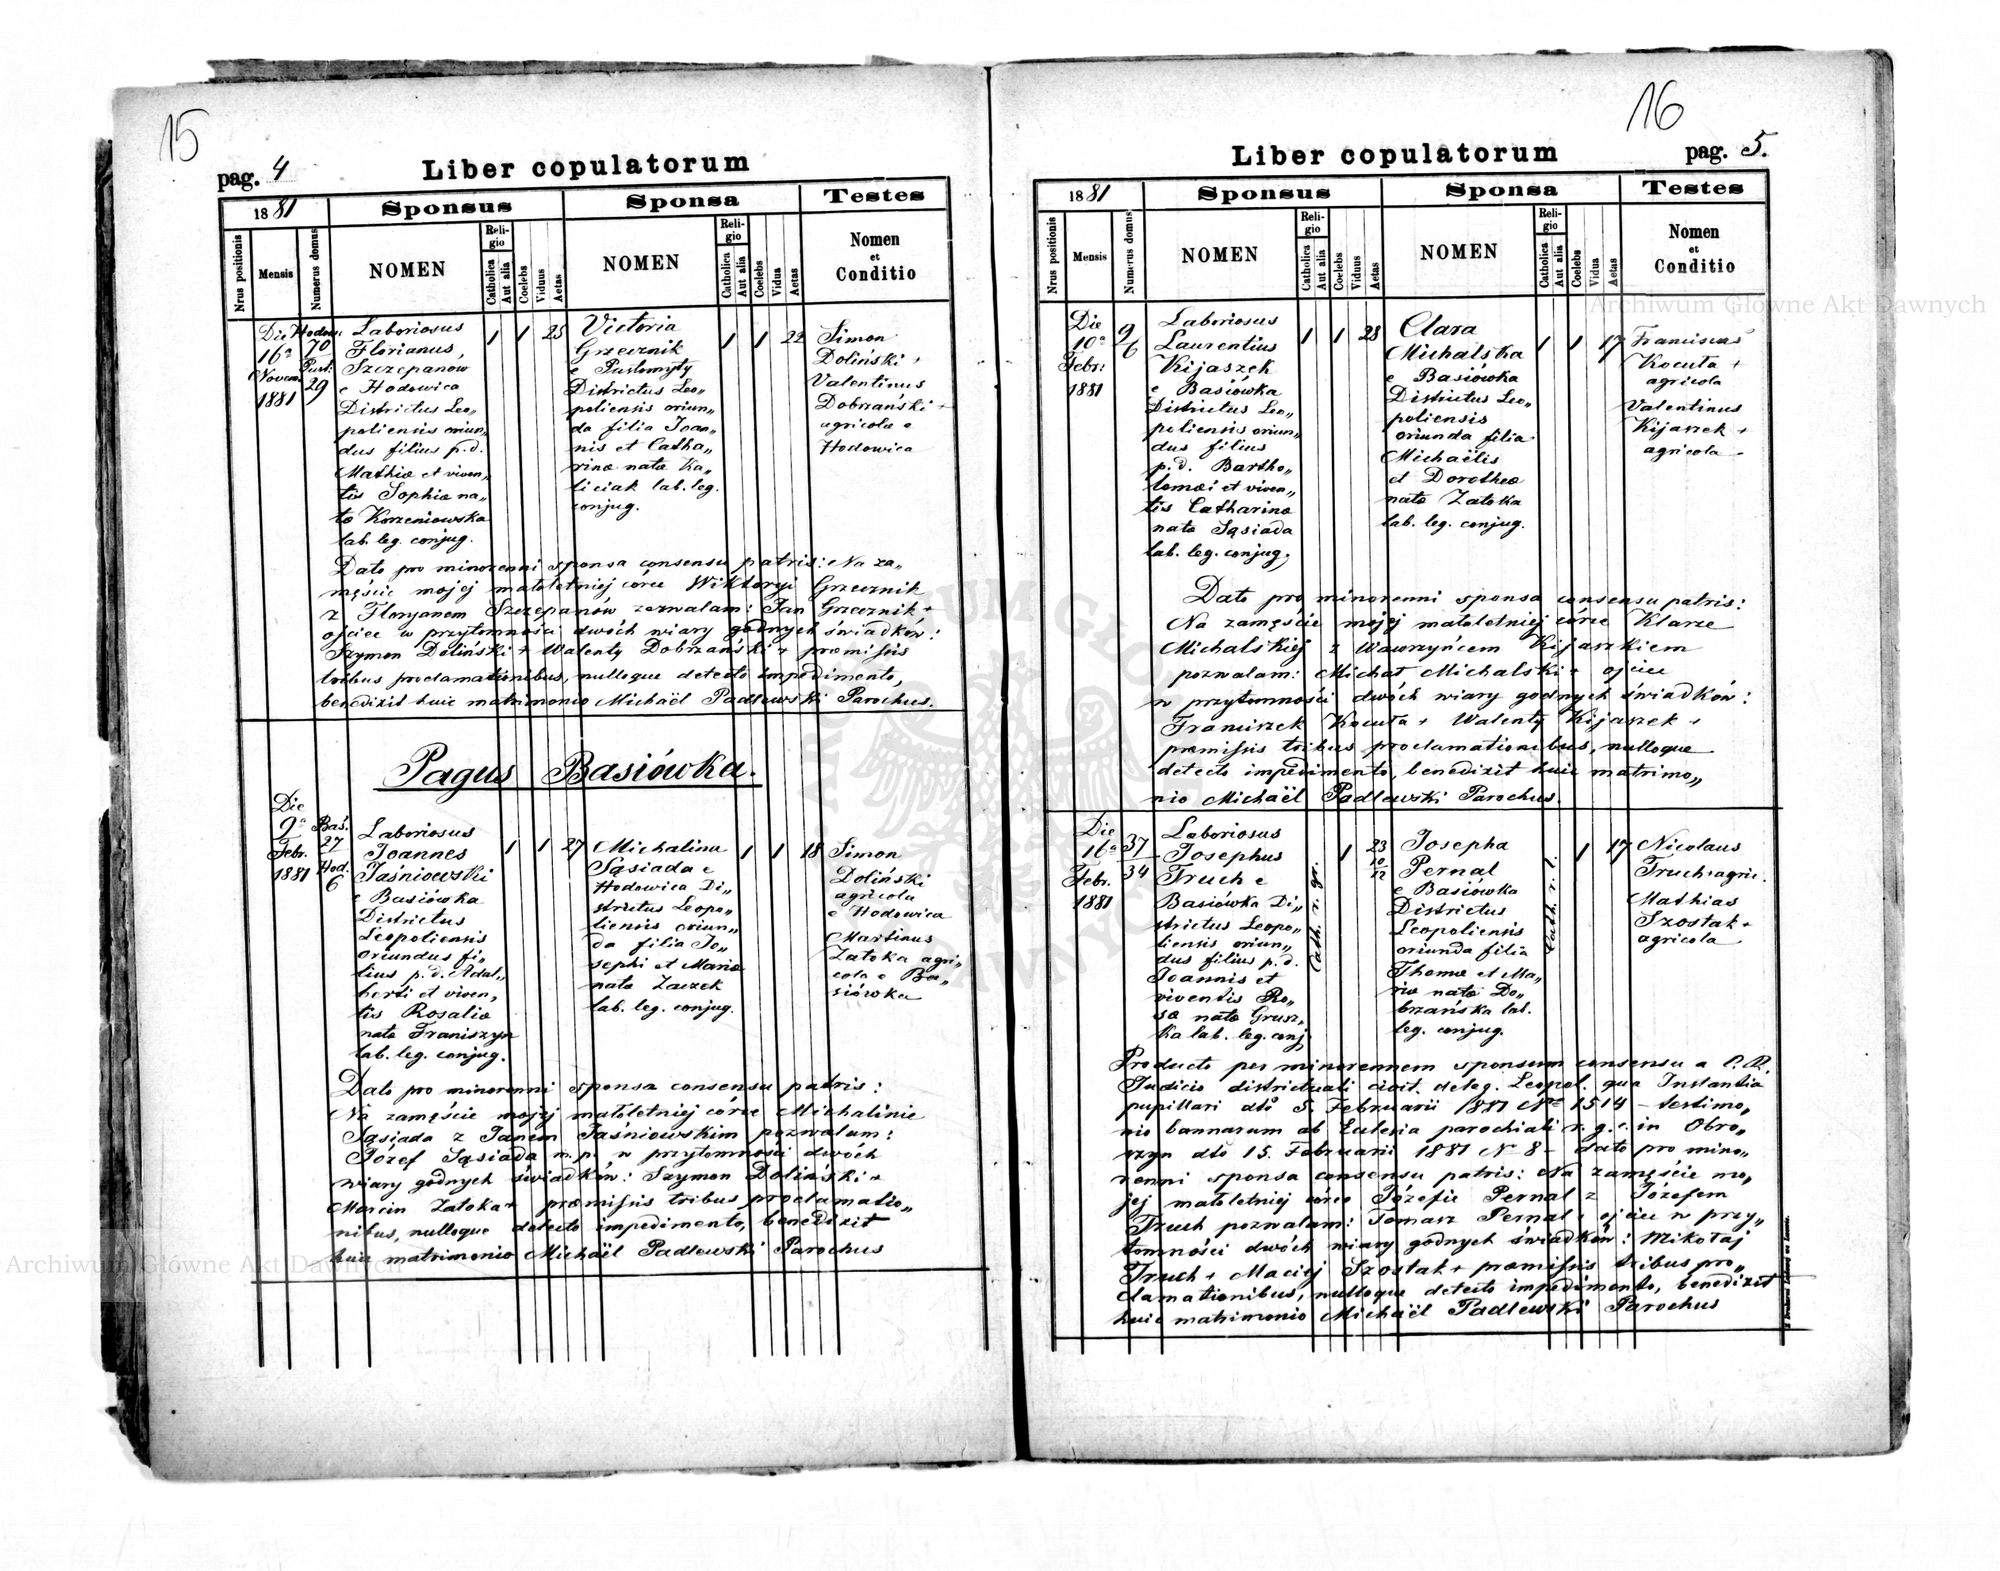 15
pag. 4
Liber copulatorum
1881
Sponsus
Sponsa
Testes
Nrus positionis
Mensis
Numerus domus
NOMEN
Religio
Catholica
Aut alia
Coelebs
Viduus
Aetas
NOMEN
Religio
Catholica
Aut alia
Coelebs
Vidua
Aetas
Nomen
et
Conditio
Die
16a
Novem.
1881
Hodow:
70
Pust:
29
Laboriosus
Florianus,
Szczepanow
e Hodowica
Districtus Leo„
poliensis oriun„
dus filius p.d.
Mathiæ et viven„
tis Sophiæ na„
tæ Korzeniowska
lab. leg. conjug.
1
1
25
Victoria
Grzecznik
e Pustomyty
Districtus Leo„
poliensis oriun„
da filia Joan„
nis et Catha„
rinæ natæ Ka„
liciak lab. leg.
conjug.
1
1
22
Simon
Doliński +
Valentinus
Dobrzański +
agricolæ e
Hodowica
Dato pro minorenni sponsa consensu patris: Na za„
męście mojej małoletniej córce Wiktoryi Grzecznik
z Floryanem Szczepanów zezwalam: Jan Grzecznik +
ojciec w przytomności dwóch wiary godnych świadków:
Szymon Doliński + Walenty Dobrzański + præmissis
tribus proclamationibus, nulloque detecto impedimento,
benedixit huic matrimonio Michaël Padlewski Parochus.
Pagus Basiówka.
Die
9a
Febr.
1881
Baś.
27
Hod.
6
Laboriosus
Joannes
Jaśniowski
e Basiówka
Districtus
Leopoliensis
oriundus fi„
lius p.d. Adal„
berti et viven„
tis Rosaliæ
natæ Franiszyn
lab. leg. conjug.
1
1
27
Michalina
Sąsiada e
Hodowica Di„
strictus Leopo„
liensis oriun„
da filia Jo„
sephi et Mariæ
natæ Zaczek
lab. leg. conjug.
1
1
18
Simon
Doliński
agricola
e Hodowica
Martinus
Zatoka agri„
cola e Ba„
siówka
Dato pro minorenni sponsa consensu patris:
Na zamęście mojej małoletniej córce Michalinie
Sąsiada z Janem Jaśniowskim pozwalam:
Józef Sąsiada m.p. w przytomności dwóch
wiary godnych świadków: Szymon Doliński +
Marcin Zatoka + præmissis tribus proclamatio„
nibus, nulloque detecto impedimento, benedixit
huic matrimonio Michaël Padlewski Parochus
16
Liber copulatorum
pag. 5.
1881
Sponsus
Sponsa
Testes
Nrus positionis
Mensis
Numerus domus
NOMEN
Religio
Catholica
Aut alia
Coelebs
Viduus
Aetas
NOMEN
Religio
Catholica
Aut alia
Coelebs
Vidua
Aetas
Nomen
et
Conditio
Die
10a
Febr:
1881
9
6
Laboriosus
Laurentius
Kijaszek
e Basiówka
Districtus Leo„
poliensis oriun„
dus filius
p.d. Bartho„
lomæi et viven„
tis Catharinæ
natæ Sąsiada
lab. leg. conjug.
1
1
28
Clara
Michalska
e Basiówka
Districtus Leo„
poliensis
oriunda filia
Michaëlis
et Dorotheæ
natæ Zatoka
lab. leg. conjug.
1
1
17
Franciscus
Kocuła +
agricola
Valentinus
Kijaszek +
agricola
Dato pro minorenni sponsa consensu patris:
Na zamęście mojej małoletniej córce Klarze
Michalskiej z Wawrzyńcem Kijaszkiem
pozwalam: Michał Michalski + ojciec
w przytomności dwóch wiary godnych świadków:
Franciszek Kocuła + Walenty Kijaszek +
præmissis tribus proclamationibus, nulloque
detecto impedimento, benedixit huic matrimo„
nio Michaël Padlewski Parochus.
Die
16a
Febr.
1881
37
34
Laboriosus
Josephus
Truch e
Basiówka Di„
strictus Leopo„
liensis oriun„
dus filius p.d.
Joannis et
viventis Ro„
sæ natæ Grusz„
ka lab. leg. conj.
Cath. r. gr.
1
23
10
12
Josepha
Pernal
e Basiówka
Districtus
Leopoliensis
oriunda filia
Thomæ et Ma„
riæ natæ Do„
brzańska lab.
leg. conjug.
Cath. r. l.
1
17
Nicolaus
Truch + agric.
Mathias
Szostak +
agricola
Producto per minorennem sponsum consensu a C. R.
Judicio districtuali civit. deleg. Leopol. qua Instantia
pupillari dto 5. Februarii 1881 Nro 1514 – testimo„
nio bannorum ab Ecclesia parochiali r. g. c. in Obro„
szyn dto 15. Februarii 1881 N 8 – dato pro mino„
renni sponsa consensu patris: Na zamęście mo„
jej małoletniej córce Józefie Pernal z Józefem
Truch pozwalam: Tomasz Pernal + ojciec w przy„
tomności dwóch wiary godnych świadków: Mikołaj
Truch + Maciej Szostak + præmissis tribus pro„
clamationibus, nulloque detecto impedimento, benedixit
huic matrimonio Michaël Padlewski Parochus
Archiwum Główne Akt Dawnych
Archiwum Główne Akt Dawnych
ARCHIWUM GŁÓWNE AKT DAWNYCH